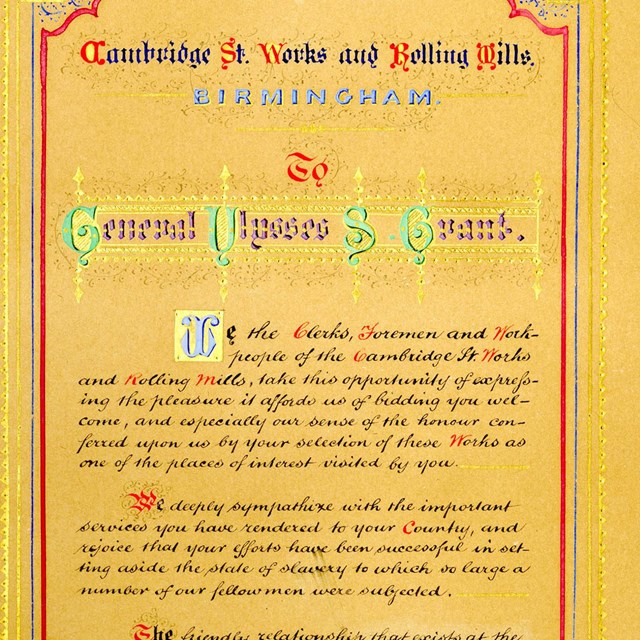 Cambridge St. Works and Rolling Mills.
BIRMINGHAM.
To
General Ulysses S. Grant.
We the Clerks, Foremen and Work-
people of the Cambridge St. Works
and Rolling Mills, take this opportunity of express-
ing the pleasure it affords us of bidding you wel-
come, and especially our sense of the honour con-
ferred upon us by your selection of these Works as
one of the places of interest visited by you.
We deeply sympathize with the important
services you have rendered to your Country, and
rejoice that your efforts have been successful in set-
ting aside the state of slavery to which so large a
number of our fellowmen were subjected.
The friendly relationship that exists at the